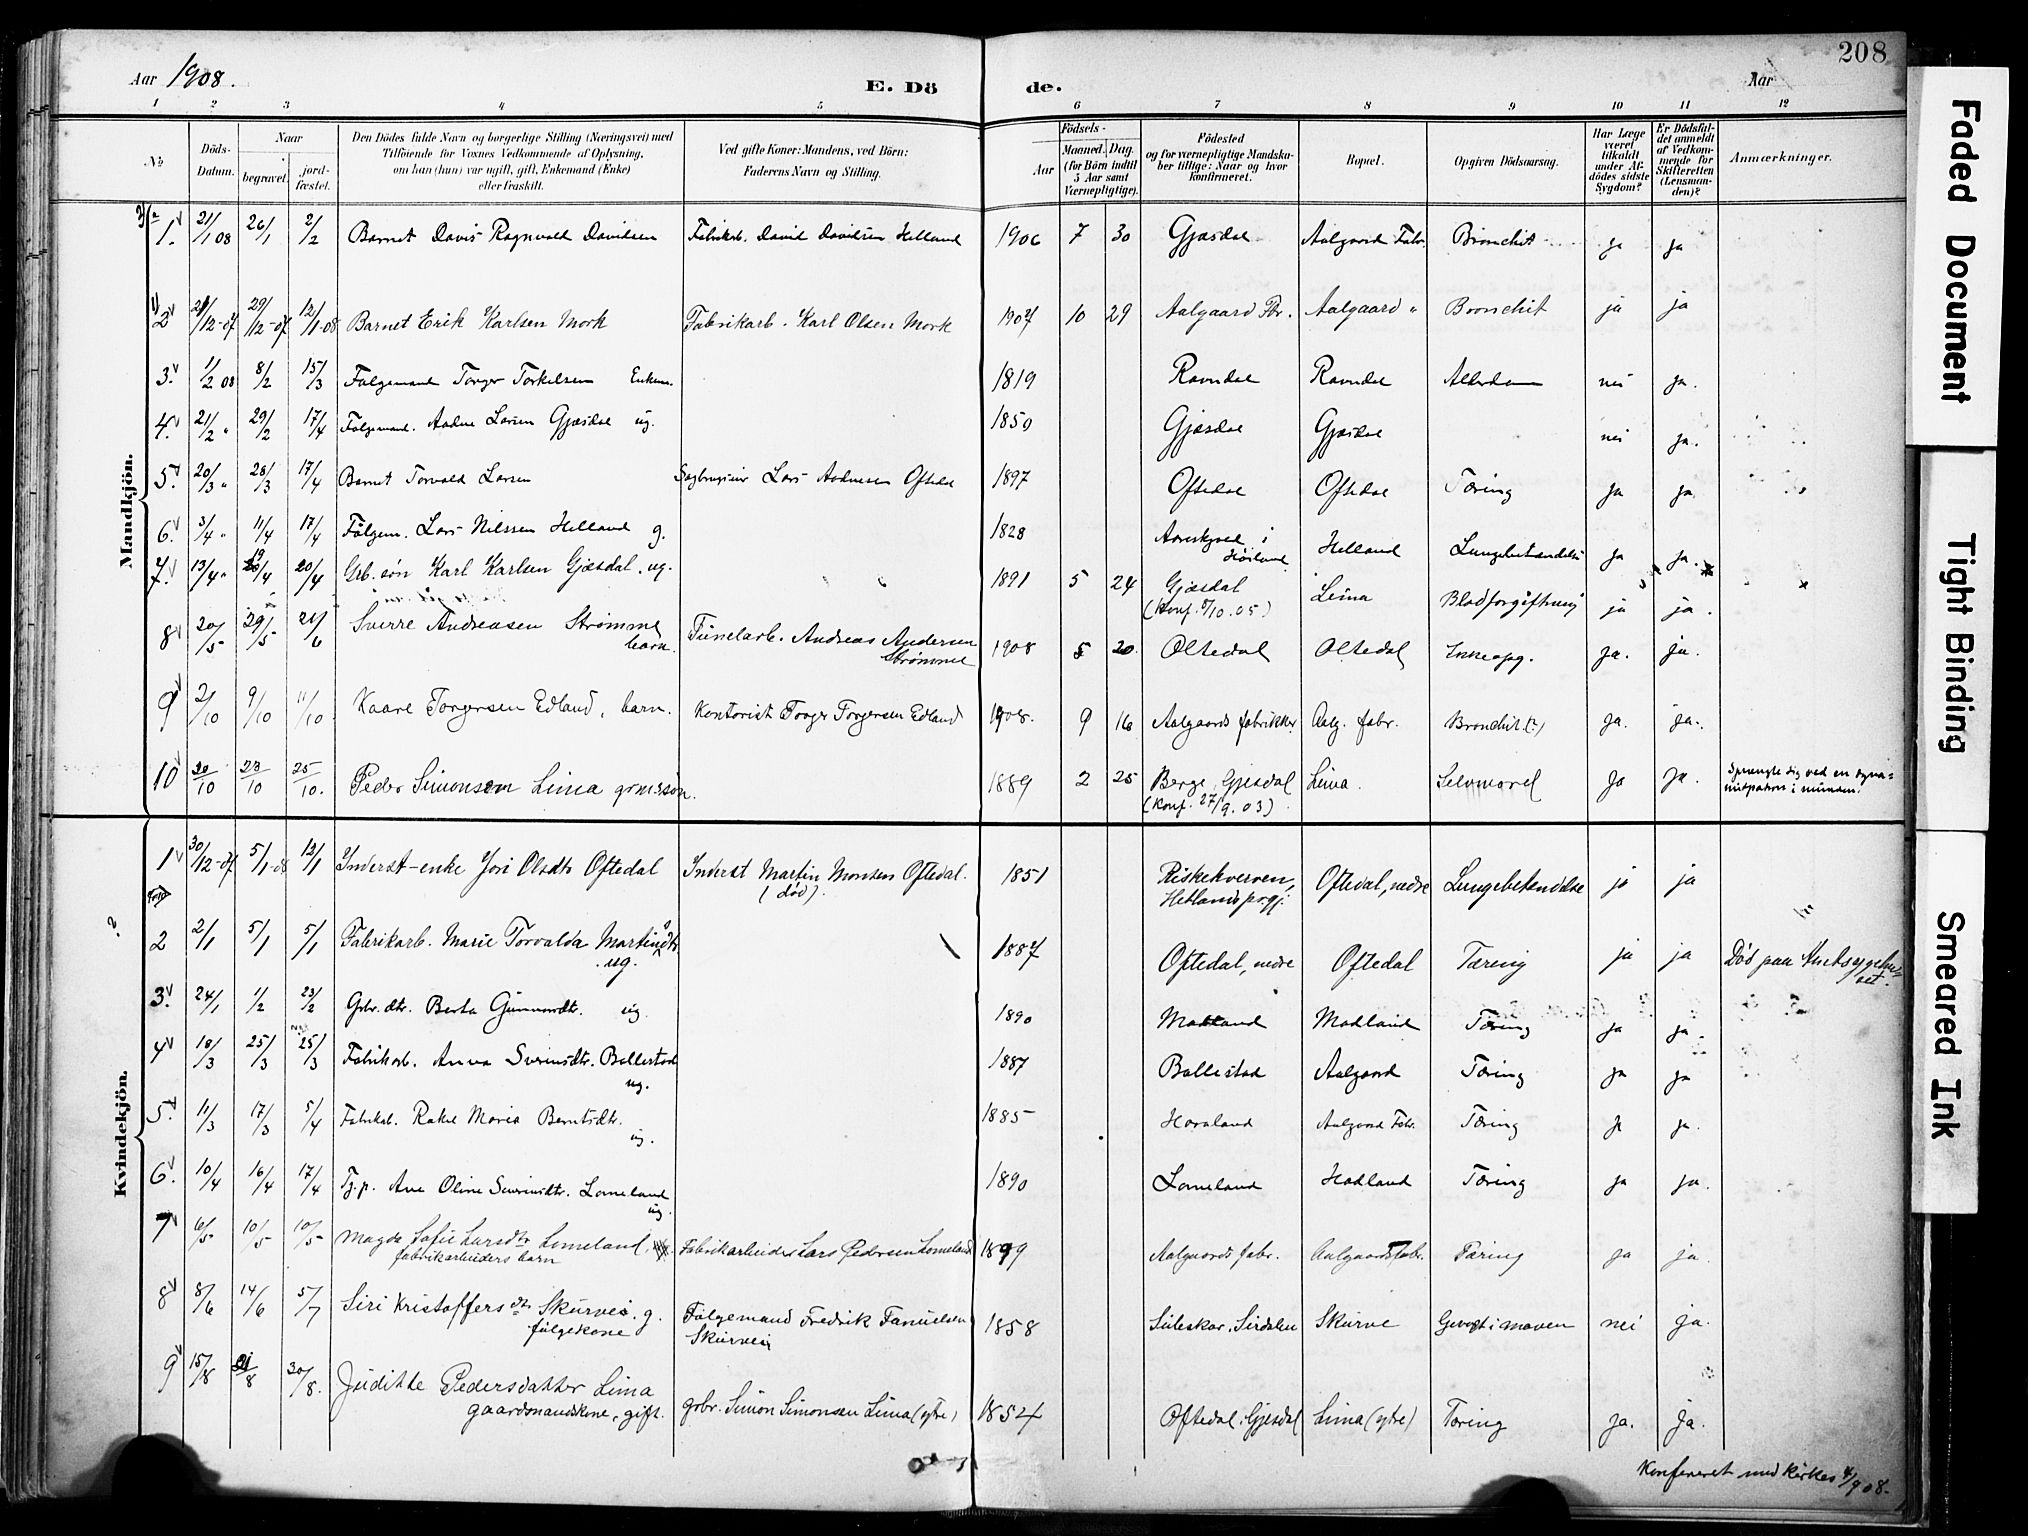 208
Aar 1908.
E. Döde.
Aar
1 2 3 4 5 6 7 8 9 10 11 12
No.
Döds-Datum.
Naar
begravet.
jord-fæstet.
Den Dödes fulde Navn og borgerlige Stilling (Næringsvei) med
Tilföiende for Voxnes Vedkommende af Oplysning,
om han (hun) var ugift, gift, Enkemand (Enke)
eller fraskilt.
Ved gifte Koner: Mandens, ved Börn:
Faderens Navn og Stilling.
Födsels-
Aar
Maaned. Dag.
(for Börn indtil
5 Aar samt
Værnepligtige).
Födested
og for værnepligtige Mandska-
ber tillige: Naar og hvor
konfirmeret.
Bopæl.
Opgiven Dödsaarsag.
Har Læge
været
tilkaldt
under Af-
dödes sidste
Sygdom?
Er Dödsfal-
det anmeldt
af Vedkom-
mende for
Skifteretten
(Lensman-
den)?
Anmærkninger.
Mandkjön.
1. 21/1 08 26/1 2/2 Barnet Davis Ragnvald Davidsen Fabrikarb. David Davidsen Helland 1906 7 30 Gjæsdal Aalgaard Fabr. Bronchit ja ja
2 29/12-07 12/1-08 Barnet Erik Karlsen Mork Fabrikarb. Karl Olsen Mork 1907 10 29 Aalgaard Fbr. Aalgaard " Bronchit ja ja
3. 1/2 08 8/2 15/3 Følgemand Torger Torkelsen Enkem. 1819 Ravndal Ravndal Alderdom nei ja.
4. 21/2 " 29/2 17/4 Følgemand. Aadne Larsen Gjæsdal ug. 1850 Gjæsdal Gjæsdal nei ja.
5. 20/3 " 28/3 17/4 Barnet Torvald Larsen Lars Aadnesen Oftedal 1897 Oftedal Oftedal Tæring ja ja
6. 3/4 " 11/4 17/4 Følgem. Lars Nilssen Helland g. 1828 i Høiland Helland Lungebetændelse ja ja.
7. 13/4 " 19/4 20/4 Grb. søn Karl Karlsen Gjæsdal. ug. 1891 5 24 Gjæsdal Lima Blodforgiftning ja ja.
(Konf. 8/10.05)
8 20/5 29/5 21/6 Sverre Andreasen Strømme Tunelarb. Andreas Andersen 1908 5 20 Oltedal Oltedal ja. ja.
barn. Strømme
9 2/10 9/10 11/10 Kaare Torgersen Edland, barn. Kontorist Torger Torgersen Edland 1908. 9 16 Aalgaards fabrikker Aalg. fabr. Bronchit (?) ja. ja.
10 20/10 23/10 25/10. Peder Simonsen Lima grmssøn. 1889 2 25 Berge, Gjesdal Lima. Selvmord ja ja. Sprængte sig ved en dyna-
(Konf. 27/9. 03) mitpatron i munden.
Kvindekjön.
1 30/12-07 5/1-08 12/1 Inderst-enke Jori Olsdtr Oftedal Inderst Martin Monsen Oftedal. 1851 Riskekverven, Oftedal, nedre Lungebetændelse ja ja
(død). Hetlands prgj.
2 2/1 5/1 5/1 Fabrikarb. Marie Torvalda Martinsdtr 1887 Oftedal, nedre Oftedal Tæring ja ja Død paa Amtssygehu-
ug. set.
3. 24/1 1/2 23/2 Grbr. dtr. Berta Gunnarsdtr. ug. 1890 Madland Madland Tæring ja ja
4 18/3 25/3 25/3 Fabrikarb. Anna Sverinsdtr. Bollestad 1887 Bollestad Aalgaard Tæring ja ja
ug.
5. 11/3 17/3 5/4 Fabrikarb. Rakel Maria Berntsdtr. 1885 Haaland Aalgaard Fabr. Tæring ja ja.
ug.
6. 10/4 16/4 17/4 Tj.p. Ane Oline Severinsdtr. Lomeland 1890 Lomeland Hadland Tæring ja ja.
ug.
7 6/5 10/5 10/5 Magda Sofie Larsdtr Lomeland, Fabrikarbeider Lars Pedersen Lomeland 1899 Aalgaards fabr. Aalgaards fabr. Tæring ja ja.
fabrikarbeiders barn
8 8/6 14/6 5/7 Siri Kristoffersdtr Skurve. g. Følgemand Fredrik Fanuelsen 1858 Suleskar, Sirdalen Skurve Gevækst i maven nei ja.
følgekone Skurve
9 15/8 21/8 30/8. Juditte Pedersdatter Lima grbr. Simon Simonsen Lima (ytre) 1854 Oftedal, Gjesdal Lima (ytre) Tæring ja. ja.
gaardmandskone, gift.
Konfereret med kirkes 4/9 08.
Faded Document
Tight Binding
Smeared Ink